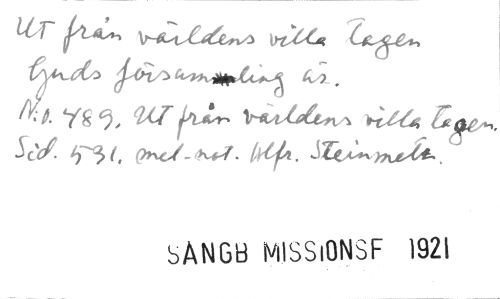 Ut från världens villa tagen
Guds församling är.
N:o. 489. Ut från världens villa tagen.
Sid. 531. mel-not. Alfr. Steinmetz.
SÅNGB MISSIONSF 1921